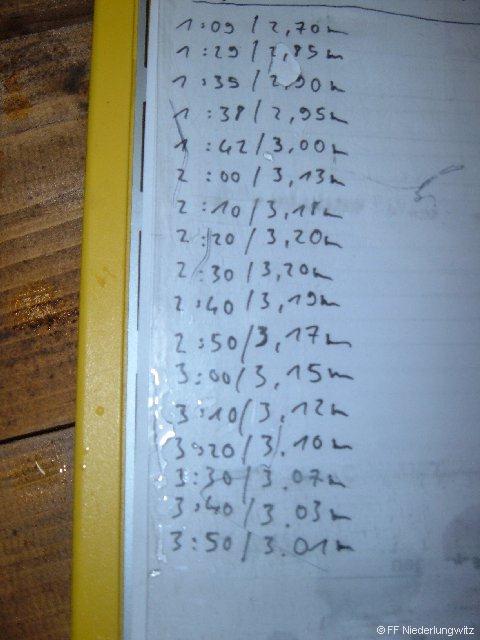 1:09/2,70m
1:29/2,85m
1:35/2,90m
1:38/2,95m
1:42/3,00m
2:00/3,13m
2:10/3,18m
2:20/3,20m
2:30/3,20m
2:40/3,19m
2:50/3,17m
3:00/3,15m
3:10/3,12m
3:20/3.10m
3:30/3.07m
3:40/3.03m
3:50/3.01m
© FF Niederlungwitz